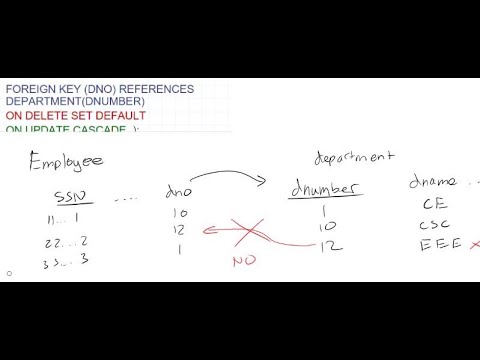 FOREIGN KEY (DNO) REFERENCES
DEPARTMENT(DNUMBER)
ON DELETE SET DEFAULT
ON UPDATE CASCADE );
Employee department
SSN .... dno dnumber dname ..
11... 1 10 1 CE
22... 2 12 10 CSC
33... 3 1 12 EEE x
NO